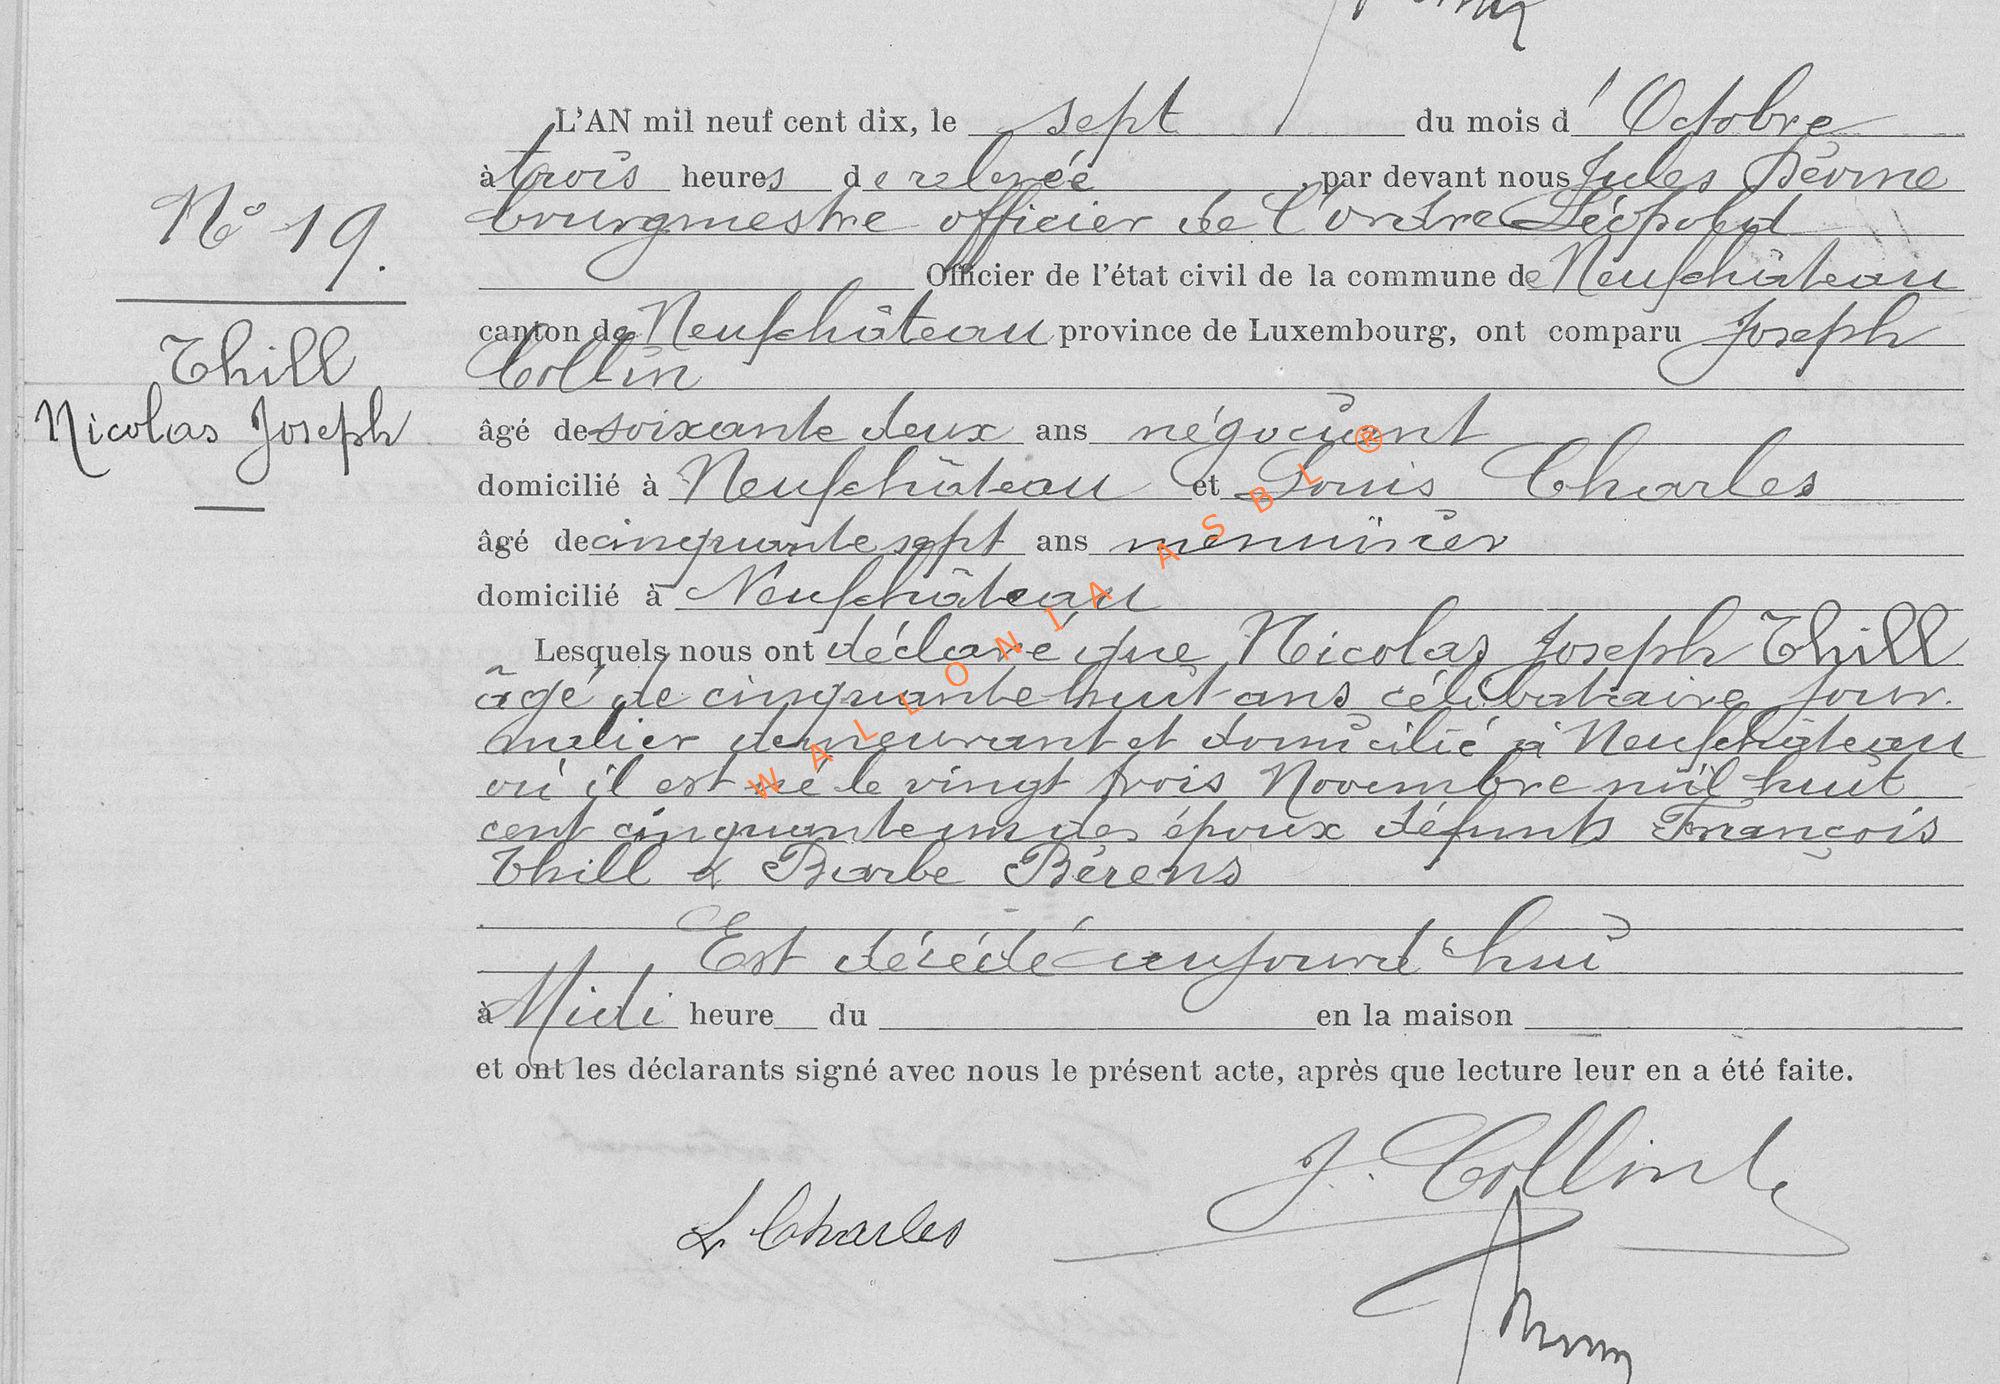 L'AN mil neuf cent dix, le sept du mois d'Octobre
à trois heures de relevée, par devant nous Jules
bourgmestre officier de l'ordre Léopold
Officier de l'état civil de la commune de Neufchâteau
canton de Neufchâteau province de Luxembourg, ont comparu Joseph
Collin
âgé de soixante deux ans négociant
domicilié à Neufchâteau et Louis Charles
âgé de cinquante sept ans menuisier
domicilié à Neufchâteau
Lesquels nous ont déclaré que Nicolas Joseph Thill
âgé de cinquante huit ans célibataire jour-
nalier demeurant et domicilié à Neufchâteau
où il est né le vingt trois Novembre mil huit
cent cinquante un des époux défunts François
Thill & Barbe Bérens
Est décédé aujourd'hui
à Midi heure du en la maison
et ont les déclarants signé avec nous le présent acte, après que lecture leur en a été faite.
N° 19.
Thill
Nicolas Joseph
J. Collin
L Charles
WALLONIA ASBL ®